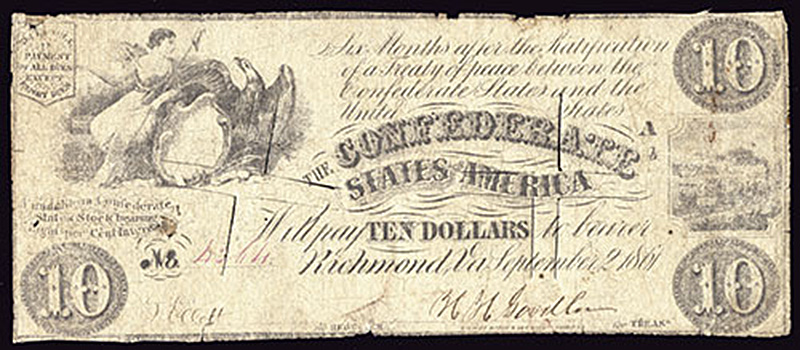 PAYMENT
OF ALL DUES
EXCEPT
EXPORT DUTIES
Six Months after the Ratification
of a Treaty of peace between the
Confederate States and the
United States
10
A
THE CONFEDERATE
STATES AMERICA
Fundable in Confederate
States Stock bearing
Per Cent Interest
Will pay TEN DOLLARS to bearer
No.
Richmond, Va September 2, 1861
10
10
TREAS.